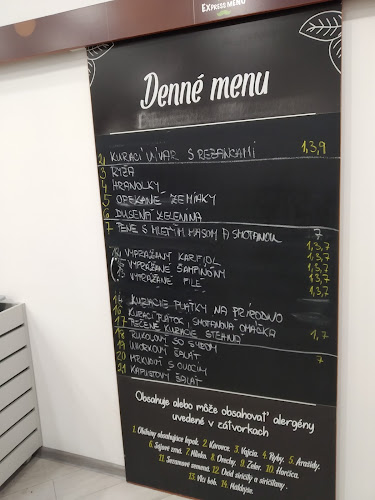 EXPRESS MENU
Denné menu
2 KURACÍ VÝVAR S REZANCAMI 1,3,9
3 RYŽA
4 HRANOLKY
5 OPEKANÉ ZEMIAKY
6 DUSENÁ ZELENINA
7 PENE S MLETÝM MÄSOM A SMOTANOU 7
VYPRÁŽANÝ KARFIOL 1,3,7
VYPRÁŽANÉ ŠAMPIŇÓNY 1,3,7
VYPRÁŽANÉ FILÉ 1,3,7
1,3,7
14 KURACIE PLÁTKY NA PRÍRODNO
16 KURACÍ PLÁTOK, SMOTANOVÁ OMÁČKA
17 PEČENÉ KURACIE STEHNO 1,7
18 RUKOLOVÝ SO SYROM
19 UHORKOVÝ ŠALÁT 7
20 MRKVOVÝ S OVOCÍM
21 KAPUSTOVÝ ŠALÁT
Obsahuje alebo môže obsahovať alergény
uvedené v zátvorkách
1. Obilniny obsahujúce lepok. 2. Kôrovce. 3. Vajcia. 4. Ryby. 5. Arašidy.
6. Sójové zrná. 7. Mlieko. 8. Orechy. 9. Zeler. 10. Horčica.
11. Sezamové semená. 12. Oxid siričitý a siričitany.
13. Vlčí bob. 14. Mäkkýše.